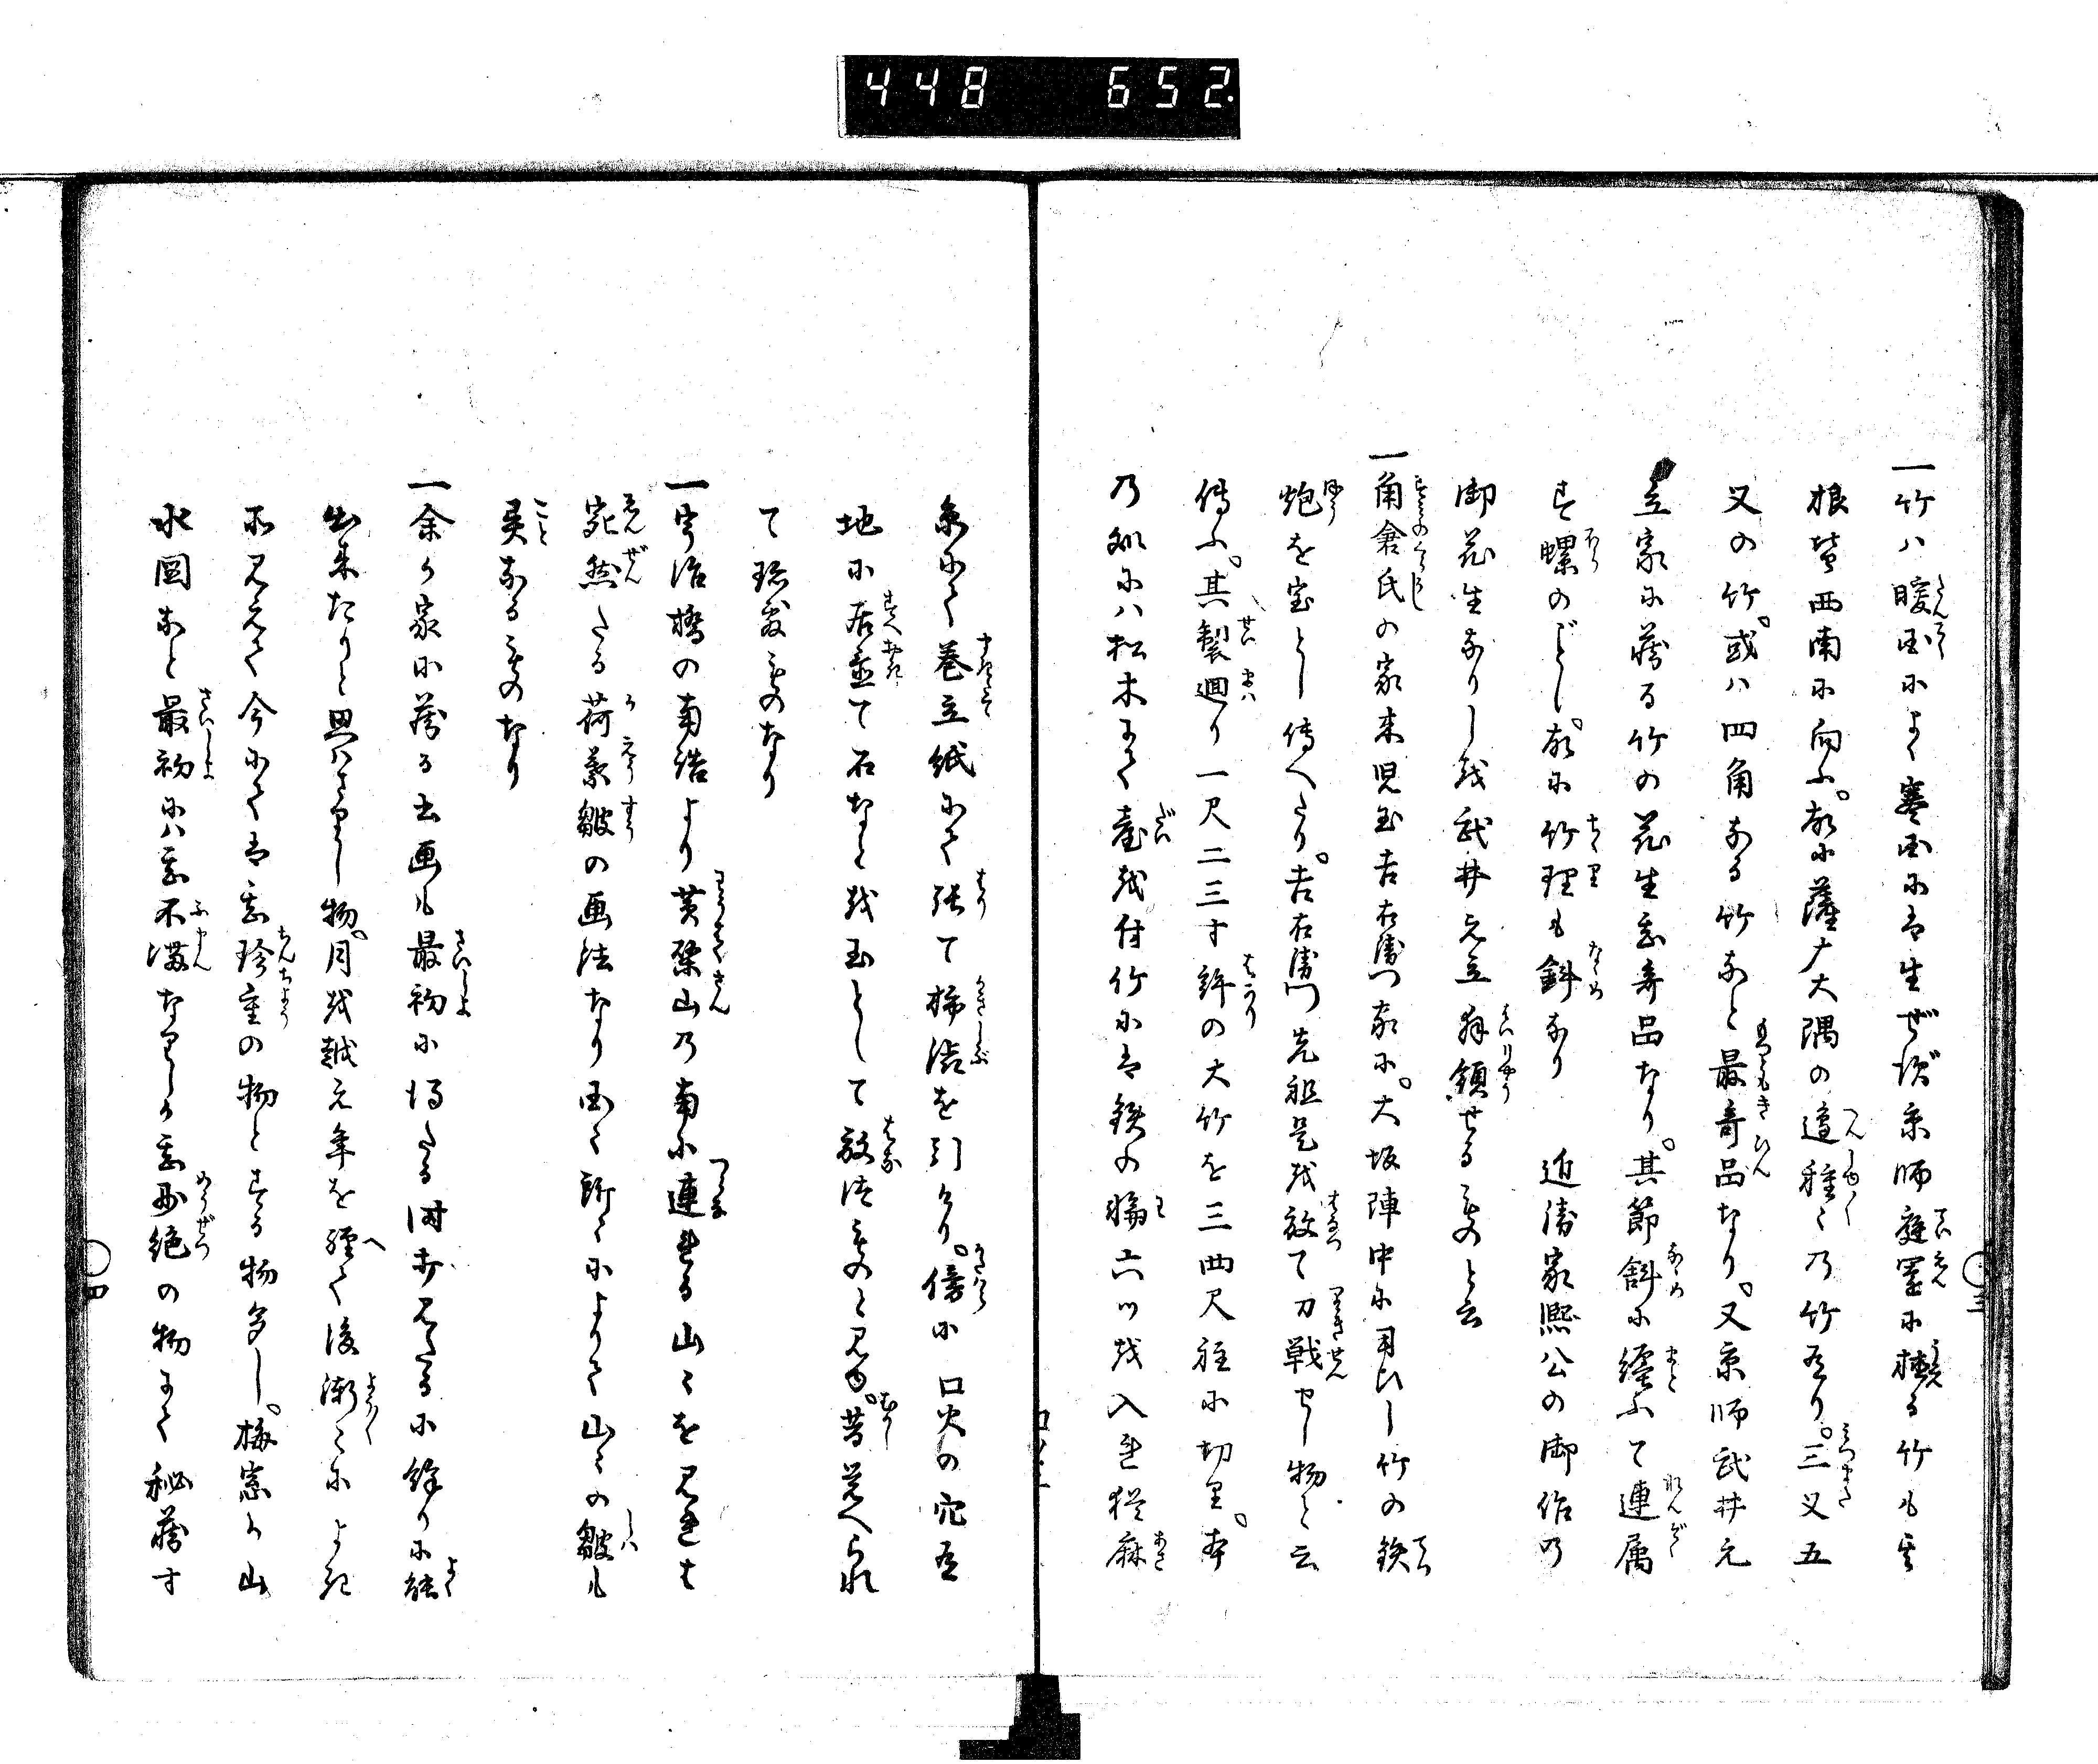 448 652
一竹ハ暖国によく寒国にハ生ぜず京師庭園に植る竹も其
根皆西南に向ふ。故に薩广大隅の辺種々乃竹有り。三又五
又の竹。或ハ四角なる竹なと最奇品なり。又京師武井元
立家に蔵る竹の花生至奇品なり。其節斜に纏ふて連属
す螺のごとし。故に竹理も斜なり 近衛家熙公の御作の
御花生なりしを武井元立拝領せるものと云
一角倉氏の家来児玉吉右衛門家に。大坂陣中に用ひし竹の鉄
炮を宝とし傳へたり。吉右衛門先祖是を放て力戦せし物と云
傳ふ。其製廻り一尺二三寸許の大竹を三四尺程に切り。本
乃処にハ松木にて臺を付竹にハ鉄の輪六ツを入れ从麻
糸にて巻立紙にて張て柿渋を引けり。傍に口火の穴有
地に居並て石なとを玉として放せしものと見ゆ。昔覚へられ
て珍敷ものなり
一宇治橋の南詰より黄檗山乃南に連れる山々を見れは
宛然たる荷葉皴の画法なり国々所々によりて山々の皴も
異なるものなり
一余か家に蔵る書画も最初に得たる時分見たるに餘りに能
出来たりと思ハさりし物。月を越え年を経て後漸々によき
所見えて今にてハ至珍重の物とする物多し。梅窓か山
水図なと最初にハ至不満なりしか至妙絶の物にて秘蔵す
三
四